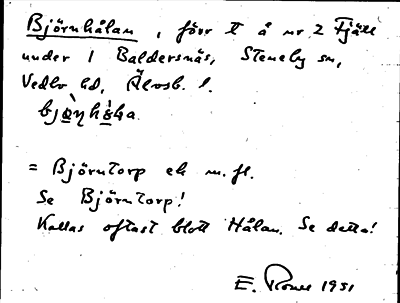 Björnhålan, förr t å nr 2 Fjäll
under 1 Baldersnäs, Steneby sn,
Vedbo hd, Älvsb. l.
= Björntorp ek m. fl.
Se Björntorp!
Kallas oftast blott Hålan. Se detta!
E. 1951